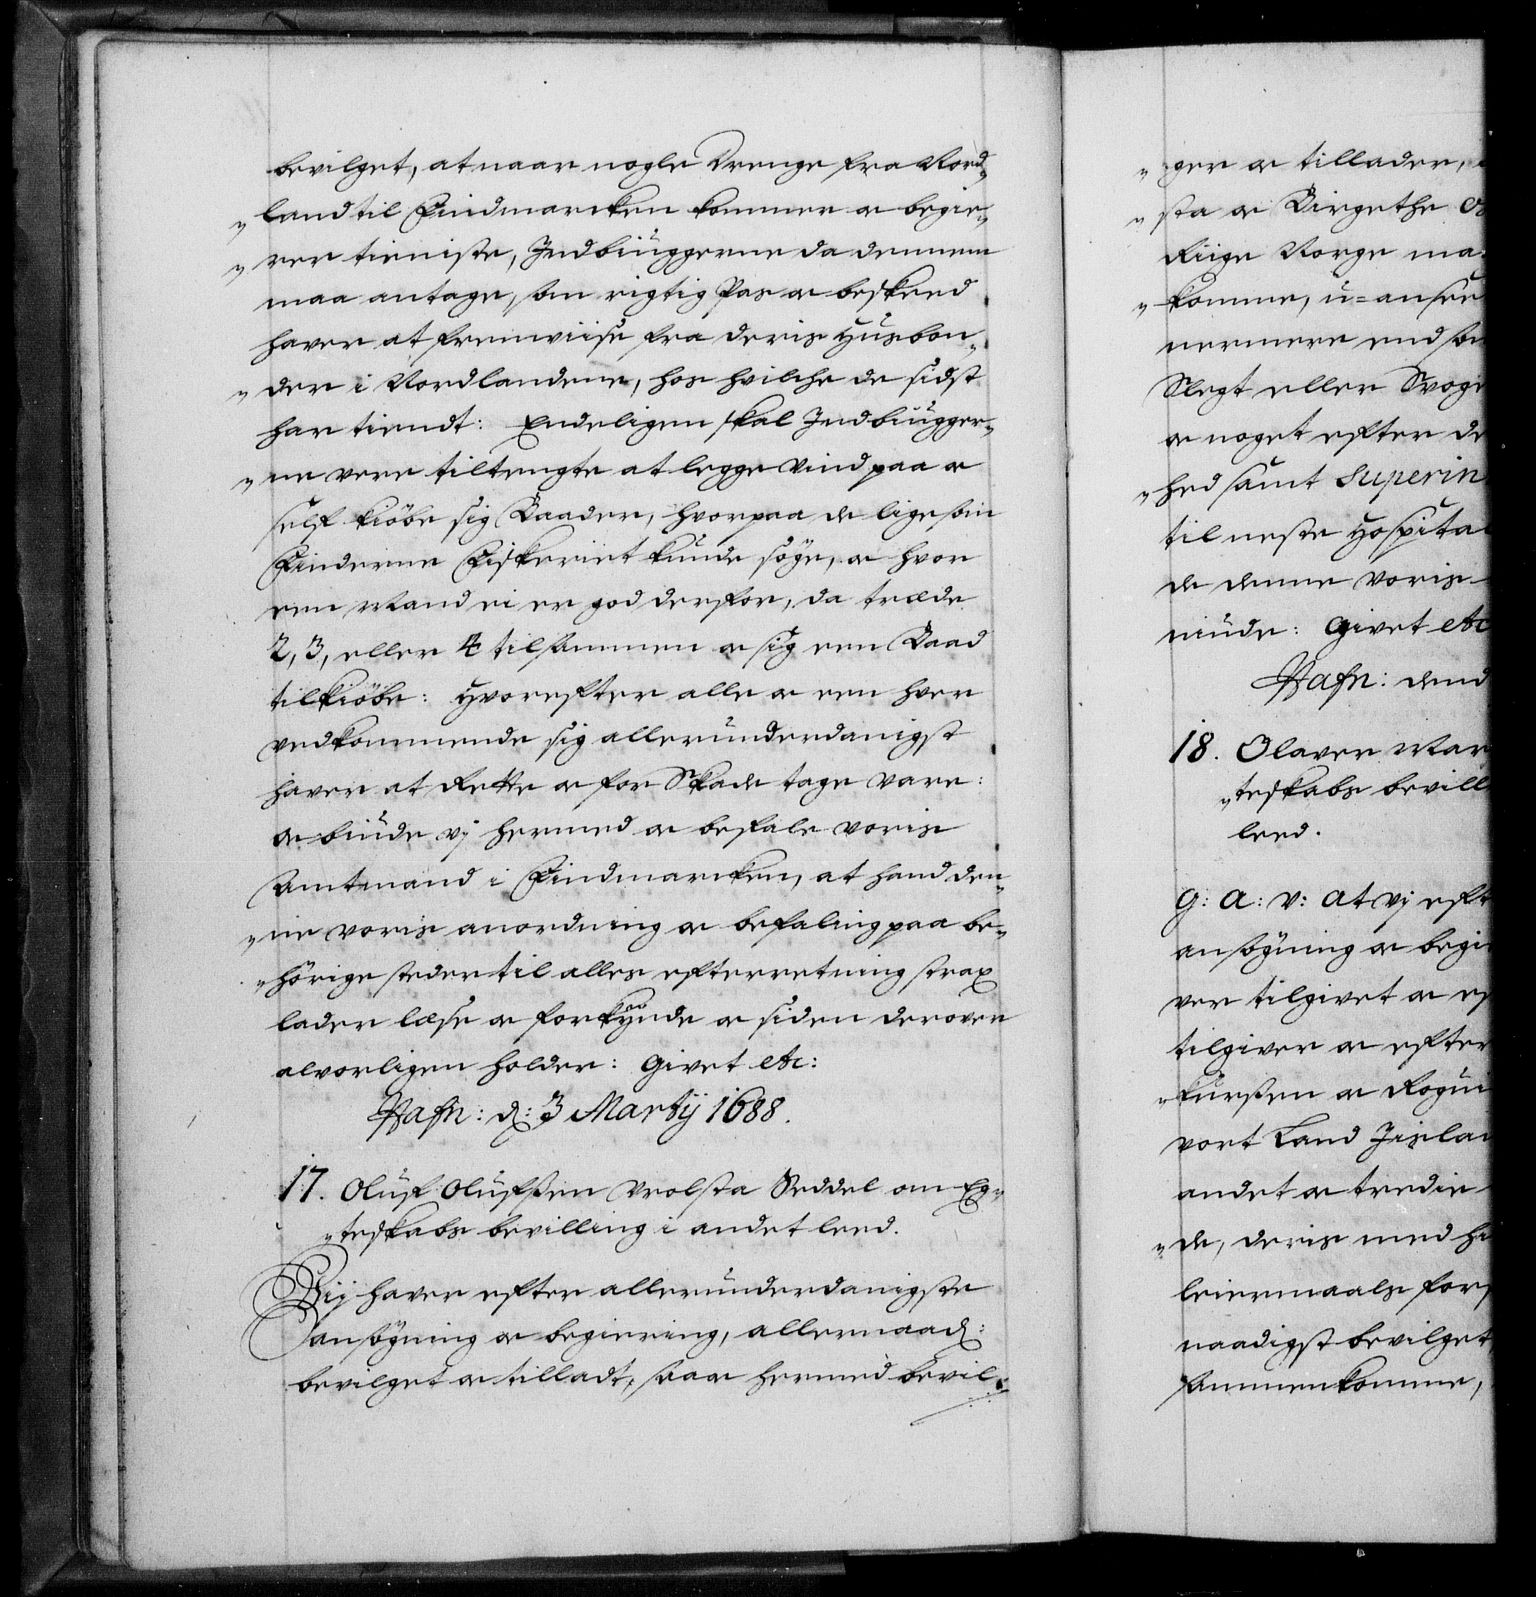 bevilget, at naar nogle Drenge fra Nord„
„land til Findmarcken kommer oc begie„
„rer tieniste, Indbiuggerne da dennem
maa antage, som rigtig Pas oc beskeed
haver at fremviise fra deris Husbon„
„der i Nordlandene, hos hvilche de sidst
har tiendt: Endeligen skal Indbiugger„
„ne vere tiltengte at legge vind paa oc
self kiöbe sig Baader, hvorpaa de lige som
Finderne Fiskeriet kunde söge, oc hvor
een Mand ei er god derfor, da træde
2, 3, eller 4 tilsammen oc sig een Baad
tilkiöbe: Hvorefter alle oc een hver
vedkommende sig allerunderdanigst
haver at Rette oc for Skade tage vare:
oc biude vj hermed oc befale voris
Amtmand i Findmarcken, at hand den„
„ne voris anordning oc befaling paa be„
„hörige steder til alles efterretning strax
lader læse oc forkynde oc siden derover
alvorligen holder: Givet etc:
Hafn: d: 3 Martij 1688.
17. Oluf Olufsen Wolsta Seddel om Eg„
„teskabs bevilling i andet leed.
Vij haver efter allerunderdanigste
ansögning oc begiering, allernaad:
bevilget oc tilladt, saa oc hermed bevil„
„ger oc tillader,
„sta oc Birgethe
Riige Norge ma
„komme, u=ansee
nermere end
Slegt eller Svoge
oc noget efter de
„hed samt Superin
til neste Hospital
de denne voris
niude: Givet etc
Hafn: dend
18. Olaver Mar
„teskabs bevill
leed.
G: A: V: At vj eft
ansögning oc begi
ver tilgivet oc ef
tilgiver oc efter
„kurssen oc
vort Land Iislan
andet oc tredie
„de, deris med
leiermaals for
naadigst bevilget
sammenkomme,